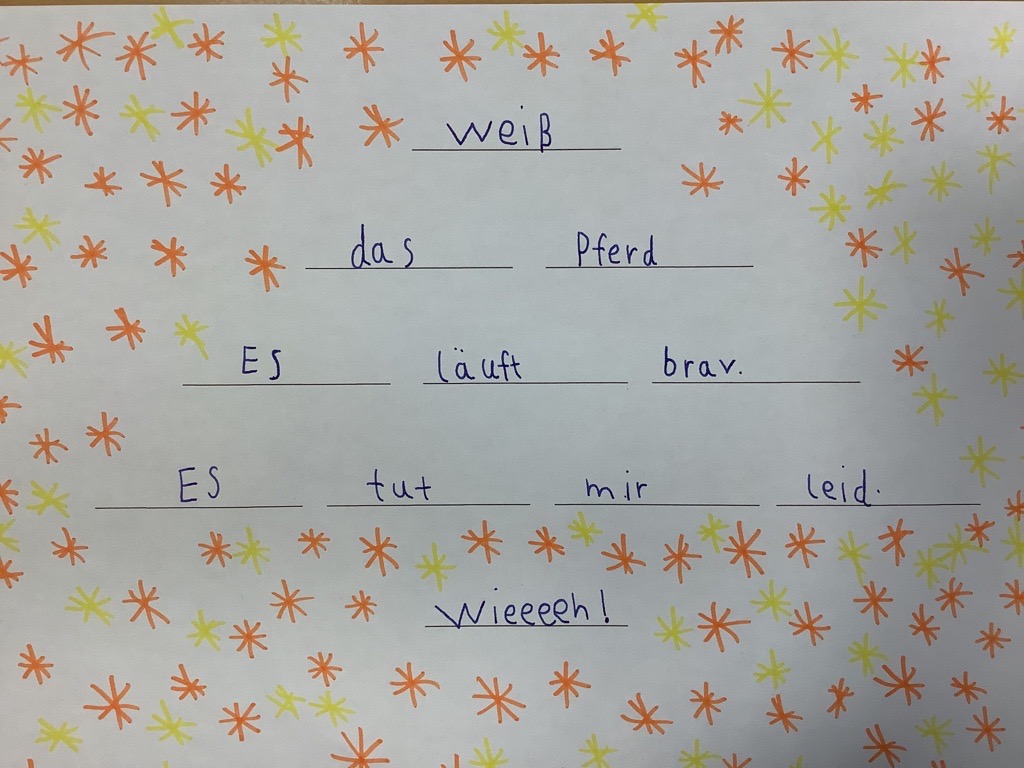 weiß
das Pferd
ES läuft brav.
ES tut mir leid.
Wieeeeh!